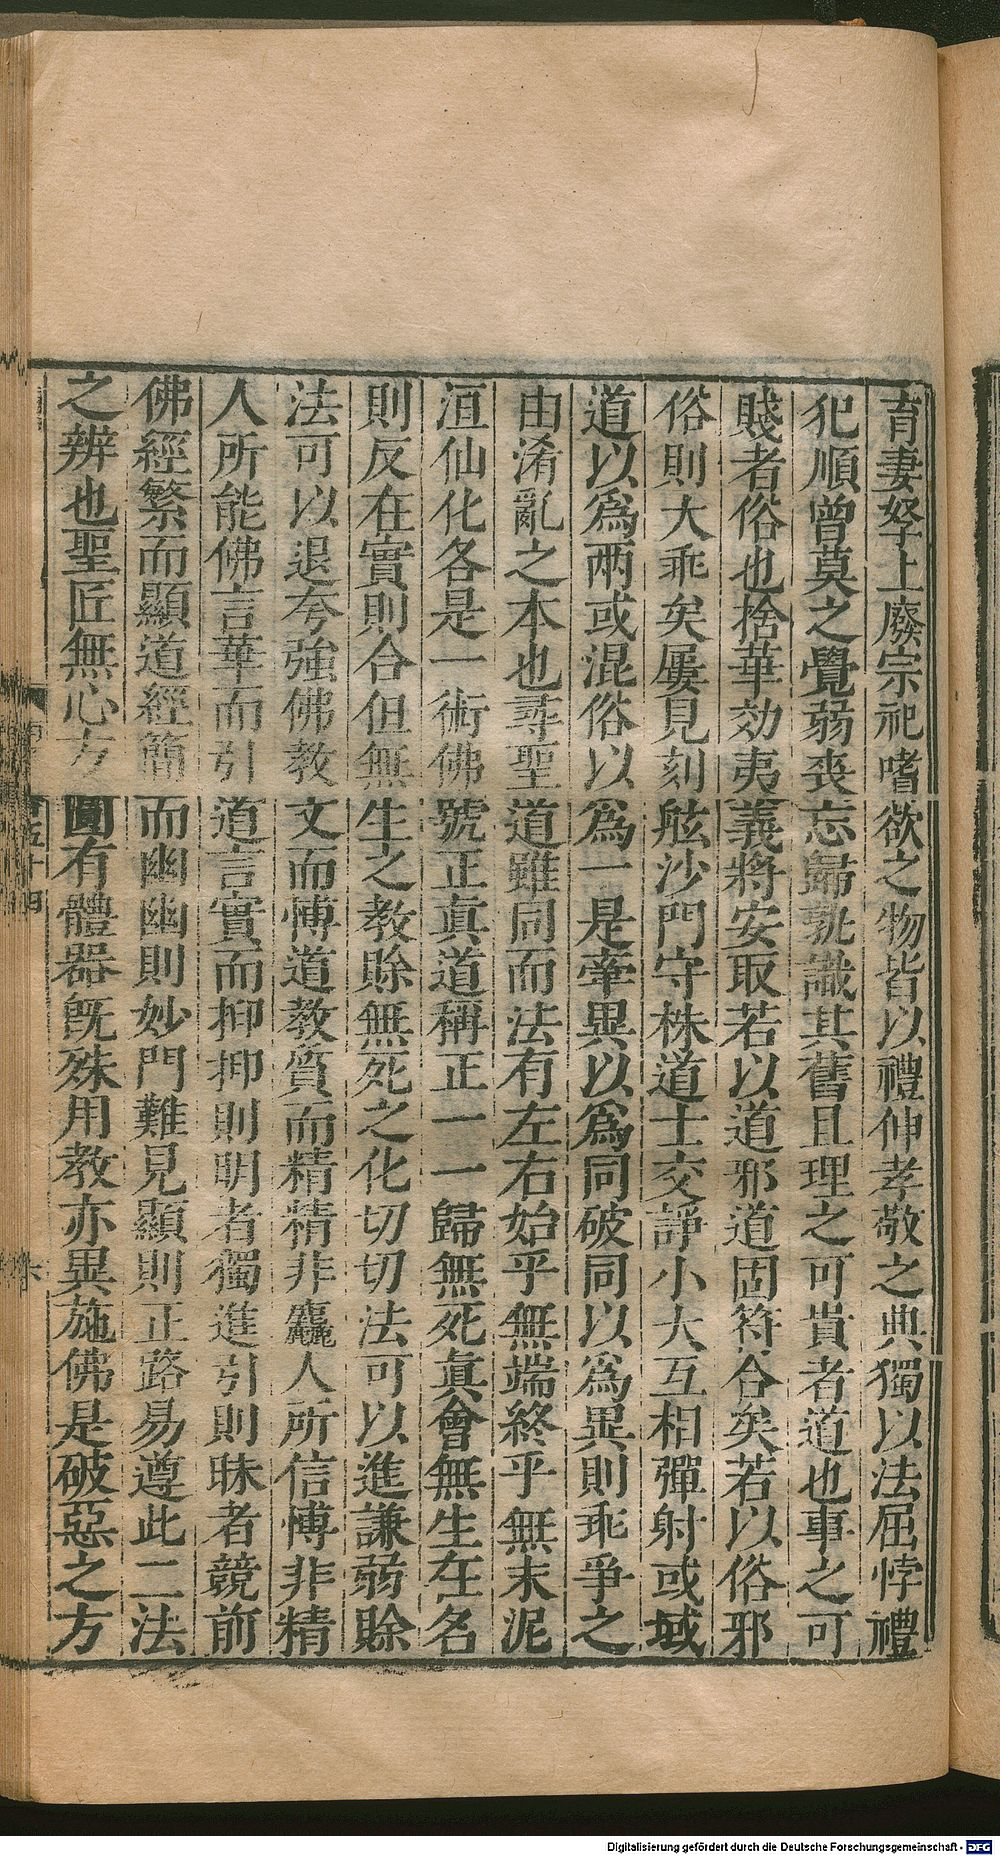 育妻孥上廢宗祀嗜欲之物皆以禮伸孝敬之典獨以法屈悖禮
犯順曾莫之覺弱喪忘歸孰識其舊且理之可貴者道也事之可
賤者俗也捨華効夷義將安取若以道邪道固符合矣若以俗邪
俗則大乖矣屢見刻舷沙門守株道士交諍小大互相彈射或域
道以爲兩或混俗以爲一是牽異以爲同破同以爲異則乖爭之
由淆亂之本也尋聖道雖同而法有左右始乎無端終乎無末泥
洹仙化各是一術佛號正真道稱正一一歸無死真會無生在名
則反在實則合但無生之教賒無死之化切切法可以進謙弱賒
法可以退夸強佛教文而愽道教質而精精非麤人所信愽非精
人所能佛言華而引道言實而抑抑則明者獨進引則昧者競前
佛經繁而顯道經簡而幽幽則妙門難見顯則正路易遵此二法
之辨也聖匠無心方圓有體器旣殊用教亦異施佛是破惡之方
Digitalisierung gefördert durch die Deutsche Forschungsgemeinschaft - DFG